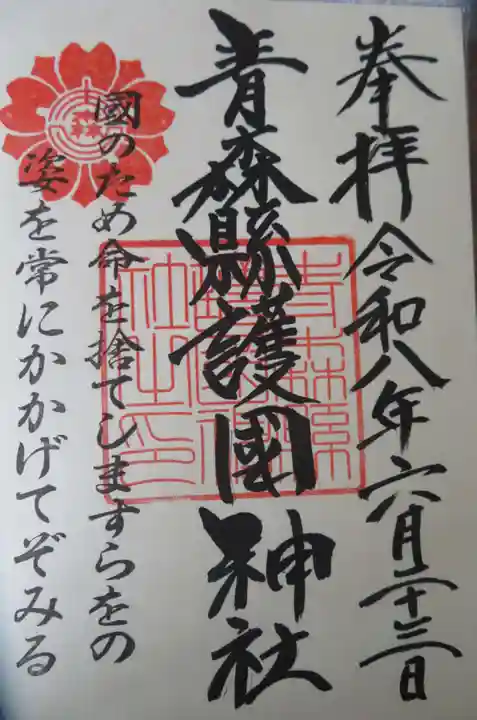 奉拝 令和八年六月二十三日
青森縣護國神社
國のため命を捨てしますらをの
姿を常にかかげてぞみる
青森縣護國神社之印